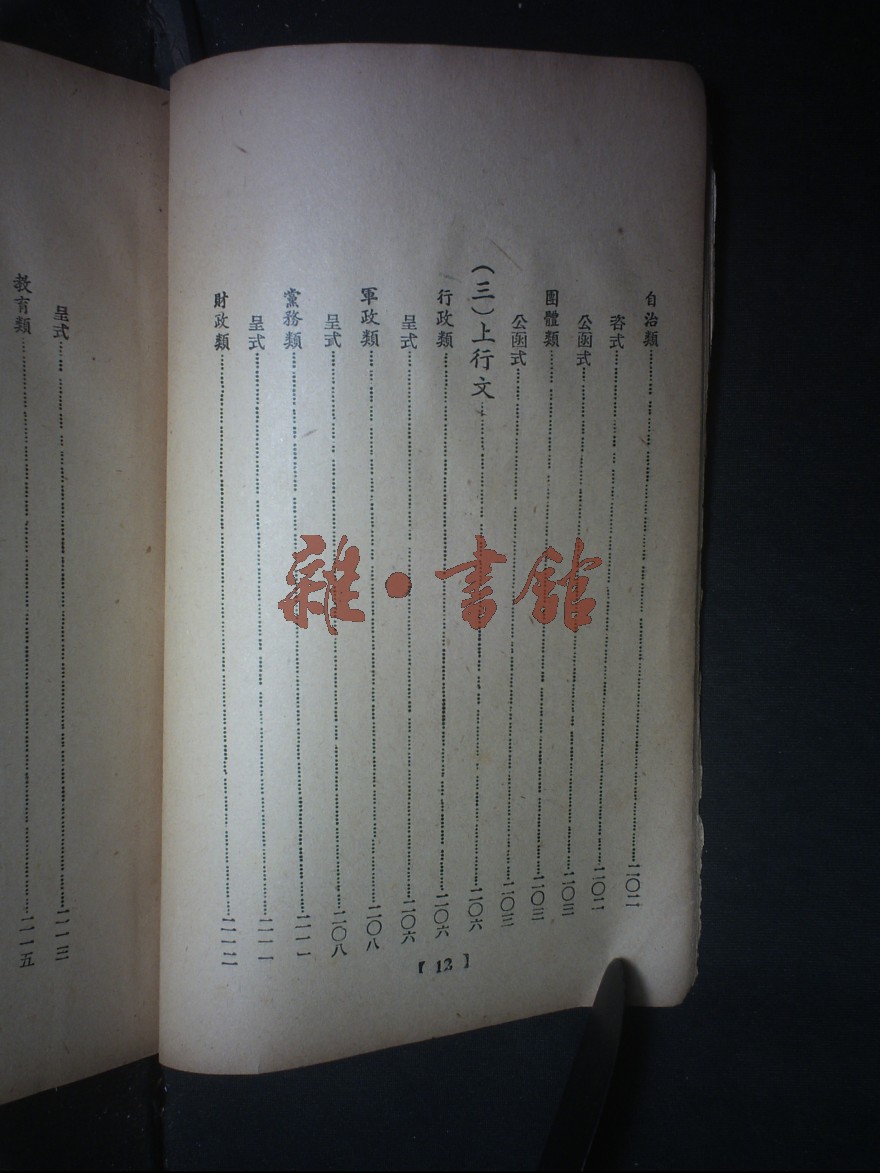 自治類……二〇二
咨式……二〇二
公函式……二〇三
團體類……二〇三
公函式……二〇三
（三）上行文……二〇六
行政類……二〇六
呈式……二〇六
軍政類……二〇八
呈式……二〇八
黨務類……二一一
呈式……二一一
財政類……二一二
【12】
呈式……二一三
教育類……二一五
雜·書館